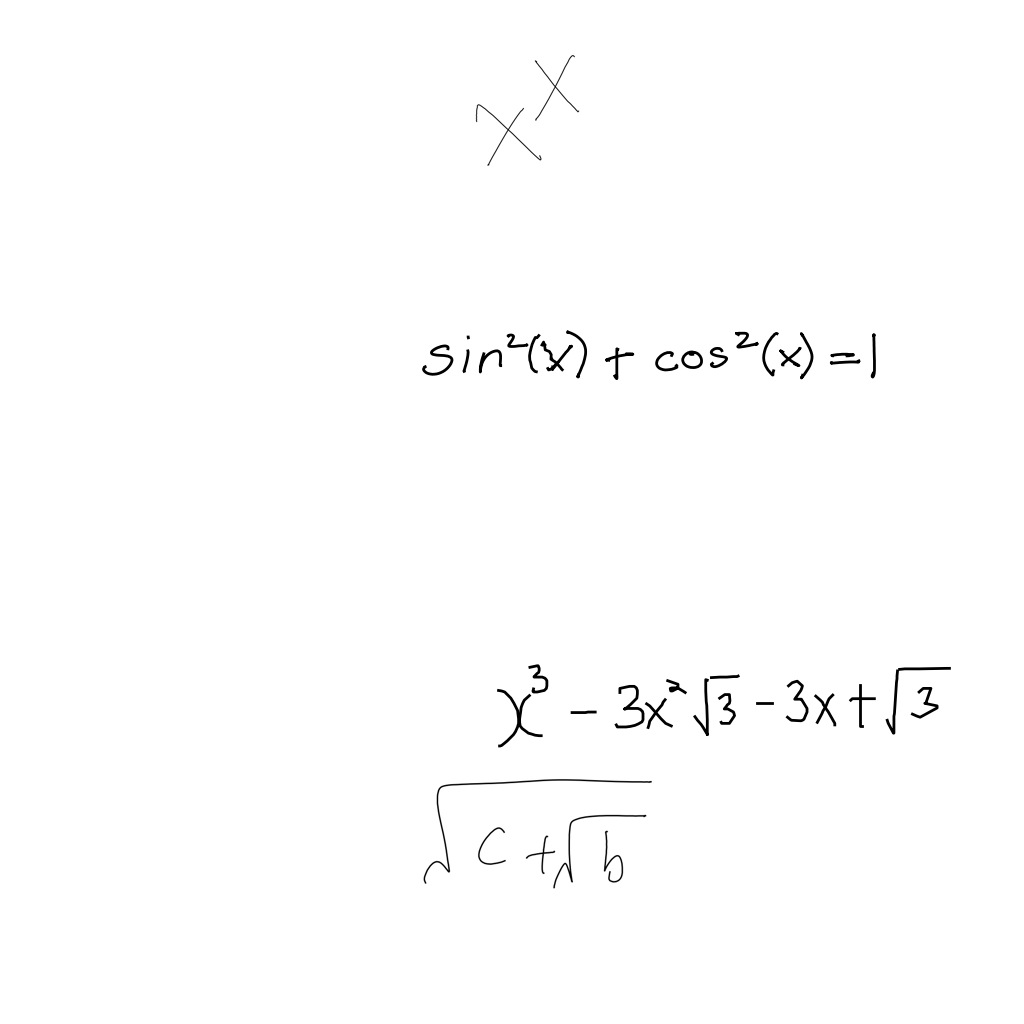 x^x
sin²(x) + cos²(x) = 1
x³ - 3x²√3 - 3x + √3
√(c + √b)